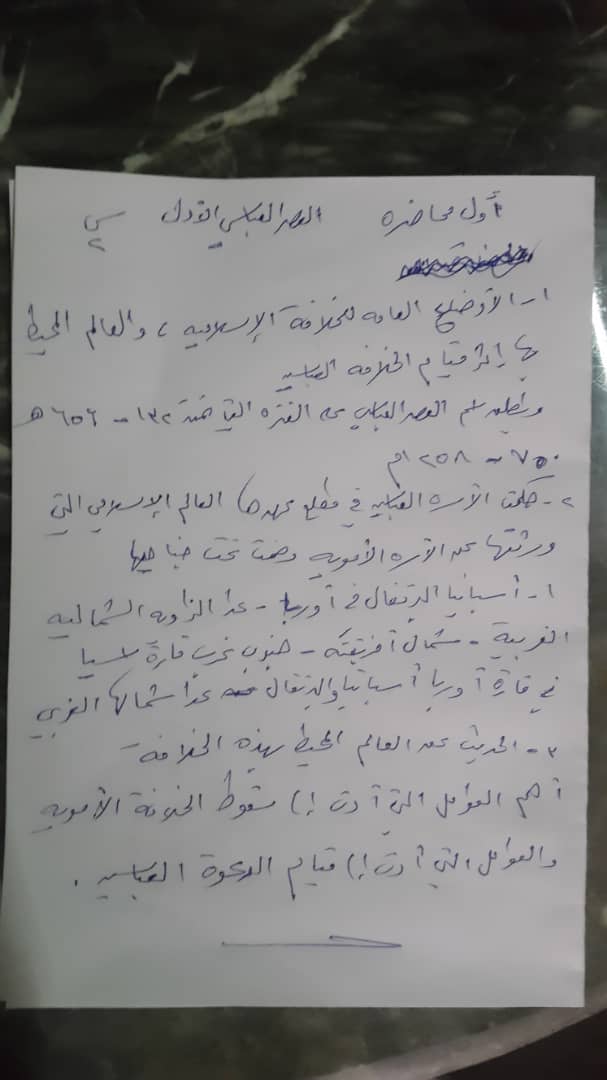 أول محاضره العصر العباسي الأول س٢
١- الأوضاع العامه للخلافة الإسلاميه، والعالم المحيط
بها إثر قيام الخلافه العباسيه
ويطلق اسم العصر العباسي على الفتره ١٣٢ - ٦٥٦ هـ
٧٥٠ - ١٢٥٨م
٢- حكمت الأسره العباسيه في مطلع عهدها العالم الإسلامي التي
ورثتها عن الأسره الأمويه وضمت تحت جناحيها
١- أسبانيا البرتغال في أوربا - عدا الزاويه الشماليه
الغربية - شمال أفريقيه - جنوب غرب قارة اسيا
في قارة أوربا أسبانيا والبرتغال عدا شمالها الغربي
٣- الحديث عن العالم المحيط بهذه الخلافة
أهم العوامل التي أدت إلى سقوط الخلافة الأمويه
والعوامل التي أدت إلى قيام الدعوة العباسيه.